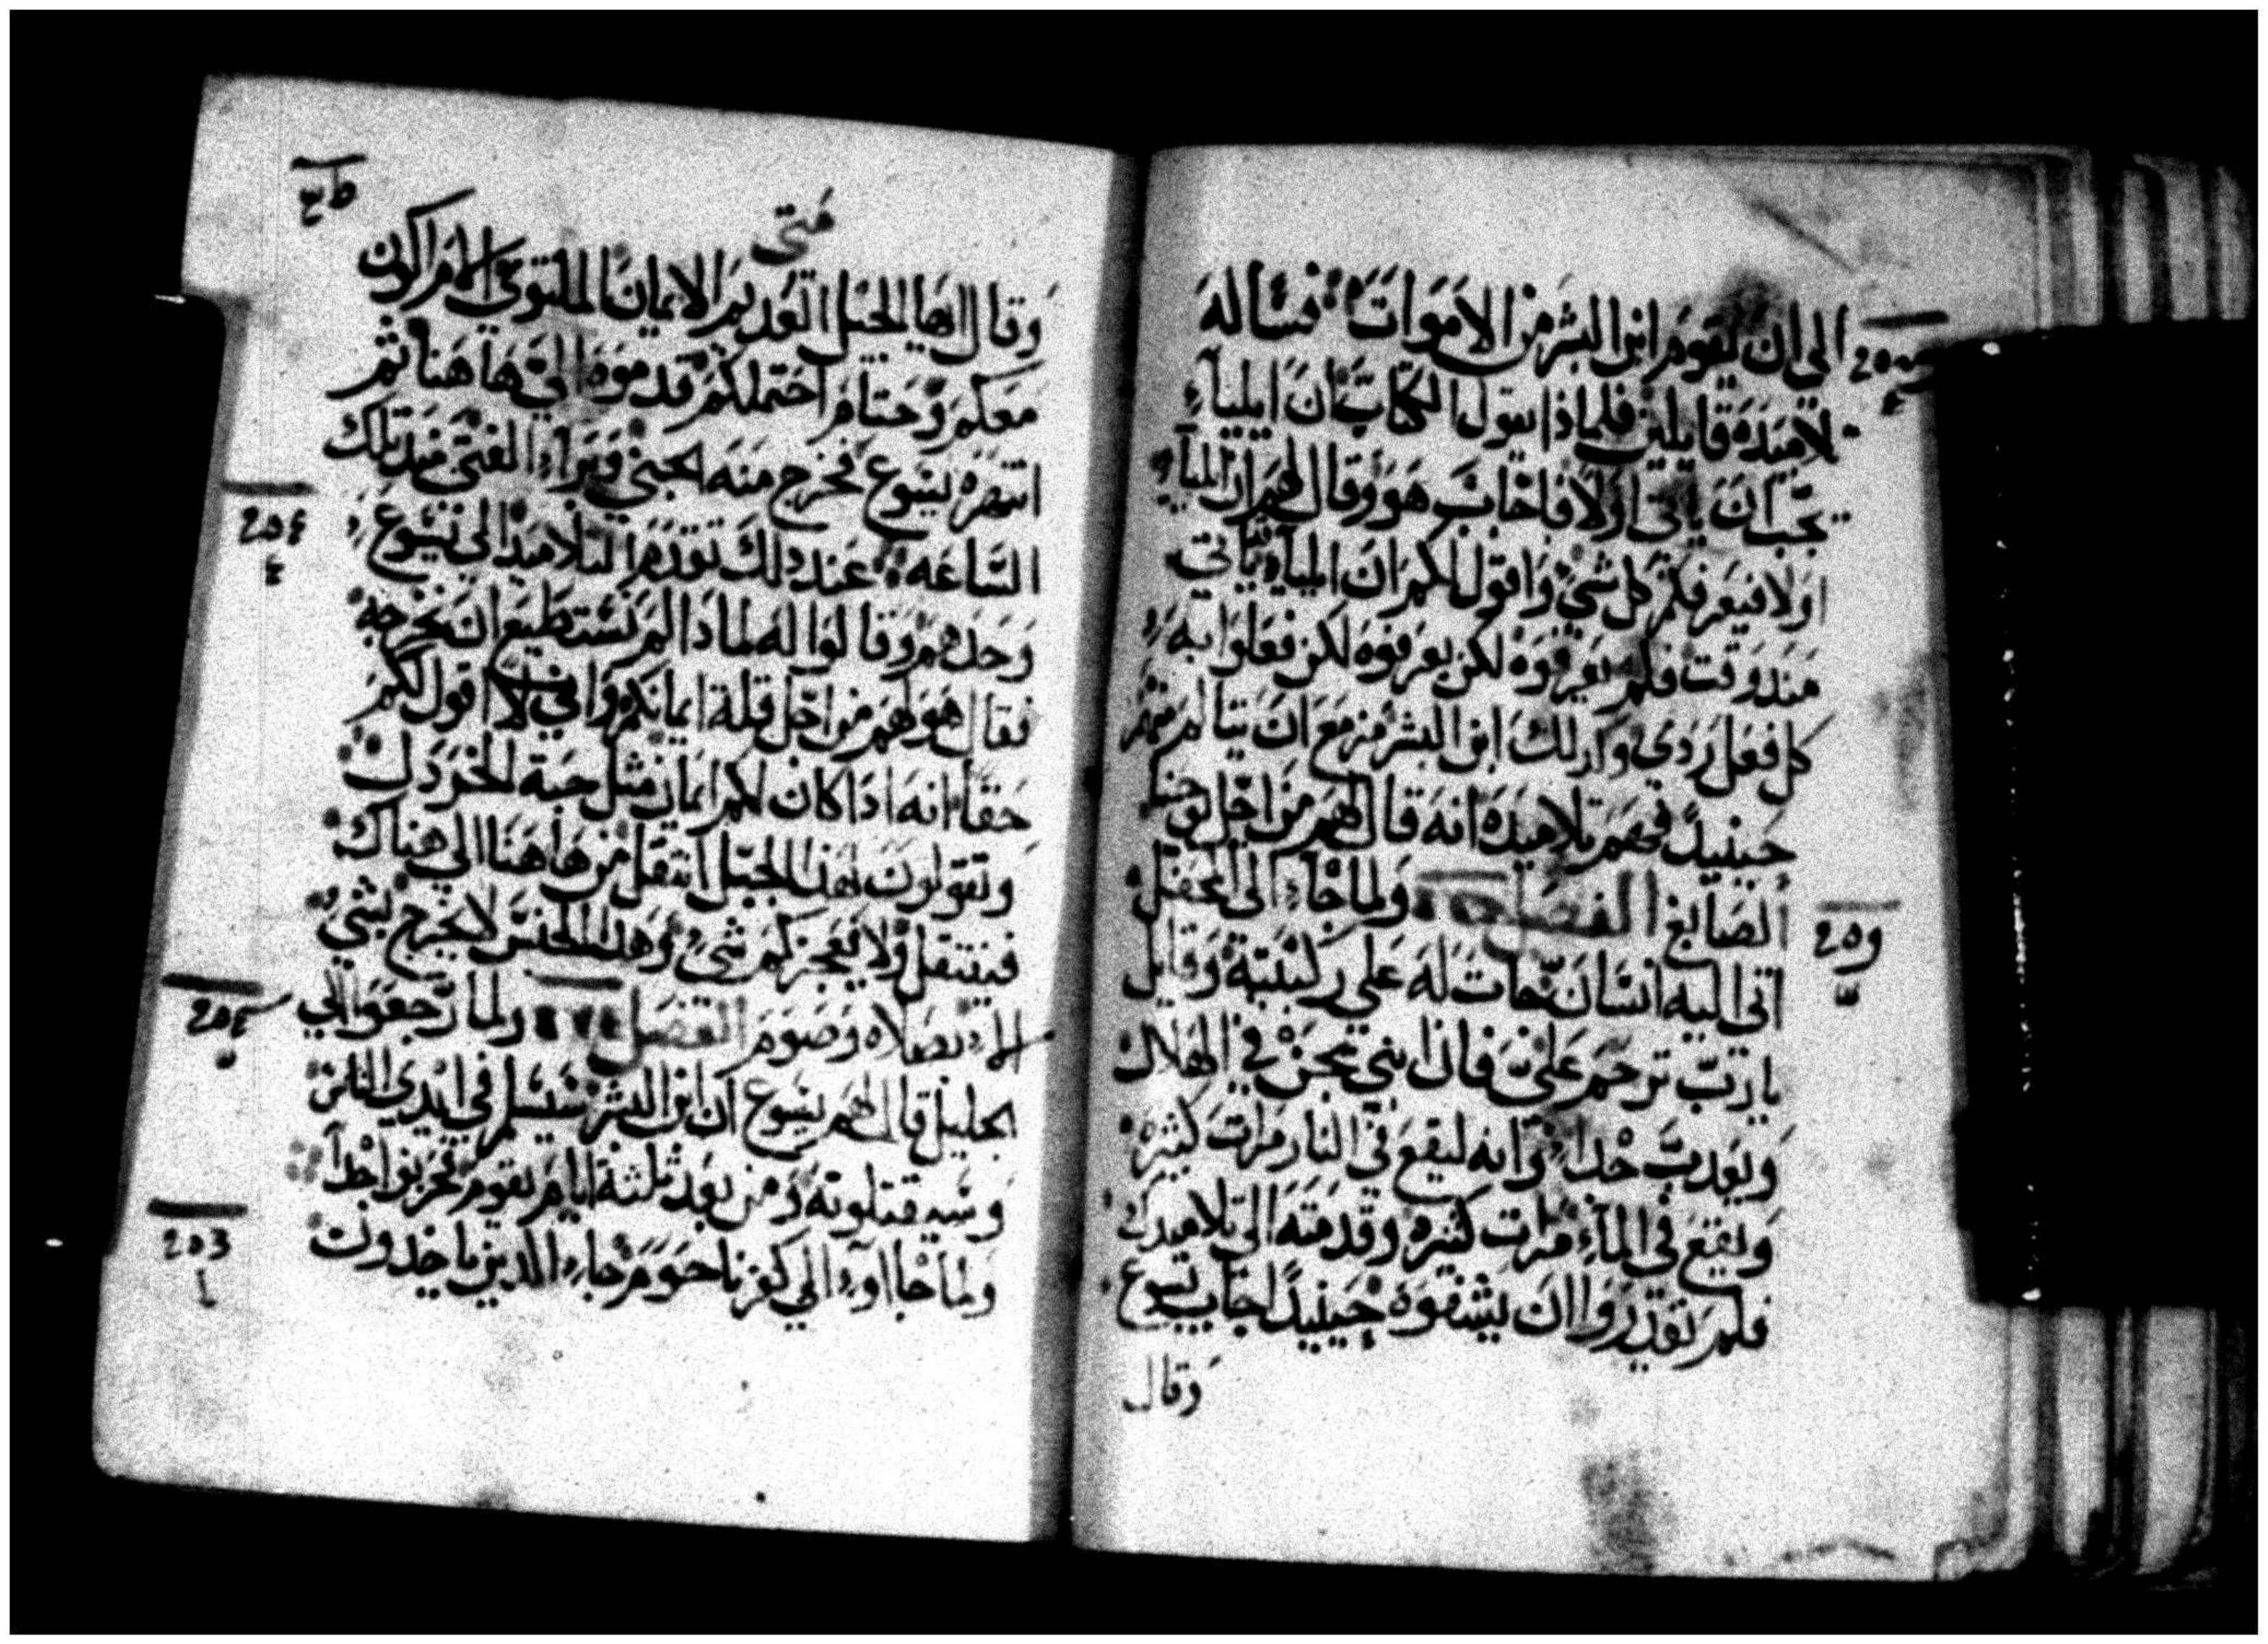 الي ان يقوم ابن البشر من الاموات فساله
تلاميده قايلين فلماذا يقول الكتاب ان ايلياء
يجب ان ياتي اولا فاجاب هو وقال لهم ان ايلياء
اولا فيعرفكم كل شي واقول لكم ان ايلياء ياتي
مند وقت فلم يعرفوه لكن فعلوا به
كل فعل ردي وكدلك ابن البشر مزمع ان يتالم منهم
حينيدً فهم تلاميده انه قال لهم من اجل يوحنا
الصابغ الفصل ولما جاء الي المحفل
اتى اليه انسان جات له علي ركبتيه وقايل
يارب ترحم علي فان ابني يحن في الهلاك
ويعدب جدا وانه ليقع في النار مرات كثيره
ويقع في الماء مرات كثيره وقدمته الي تلاميدك
فلم يقدروا ان يشفوه حينيدً اجاب يسوع
وقال
متى
وقال ايها الجيل العديم الايمان الملتوي الى متى اكون
معكم وحتام احتملكم قدموه الي هاهنا ثم
انتهره يسوع فخرج منه الجني وبراء الفتى مند تلك
الساعه عند دلك تقدم التلاميد الي يسوع
وحدهم وقالوا له لمادا لم نستطيع ان نخرجه
فقال هو لهم من اجل قلة ايمانكم واني لا اقول لكم
حقا انه ادا كان لكم ايمان مثل حبة الخردل
وتقولون لهدا الجبل انتقل من هاهنا الي هناك
فينتقل ولا يعجزكم شي وهدا الجنس لا يخرج بشي
الا بصلاه وصوم الفصل ولما رجعوا الي
الجليل قال لهم يسوع ان ابن البشر سيسلم في ايدي الناس
وسيقتلونه ومن بعد ثلثة ايام يقوم فحزنوا جداً
ولما جااوء الي كفرناحوم جاء الدين ياخدون